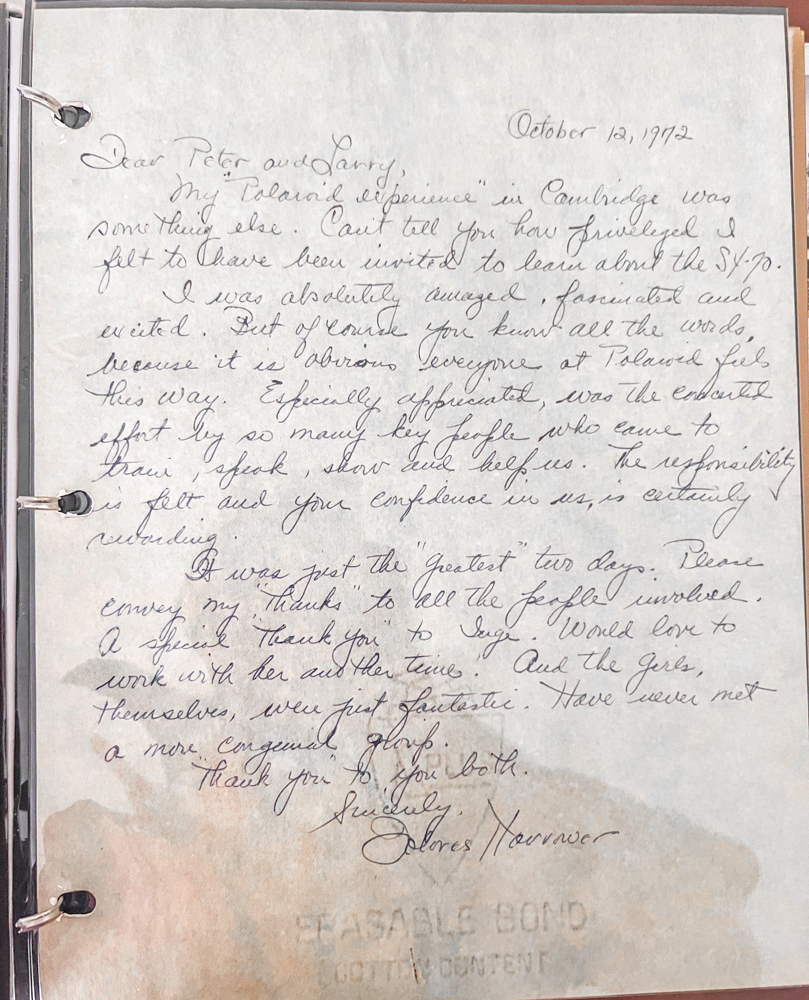 October 12, 1972
Dear Peter and Larry,
My "Polaroid experience" in Cambridge was
something else. Can't tell you how priveleged I
felt to have been invited to learn about the SX-70.
I was absolutely amazed, fascinated and
excited. But of course you know all the words,
because it is obvious everyone at Polaroid feels
this way. Especially appreciated, was the concerted
effort by so many key people who came to
train, speak, show and help us. The responsibility
is felt and your confidence in us, is certainly
rewarding.
It was just the "greatest" two days. Please
convey my "thanks" to all the people involved.
A special "thank you" to Inge. Would love to
work with her another time. And the girls,
themselves, were just fantastic. Have never met
a more congenial group.
"Thank you" to you both.
Sincerely,
Dolores Harrower
ERASABLE BOND
COTTON CONTENT